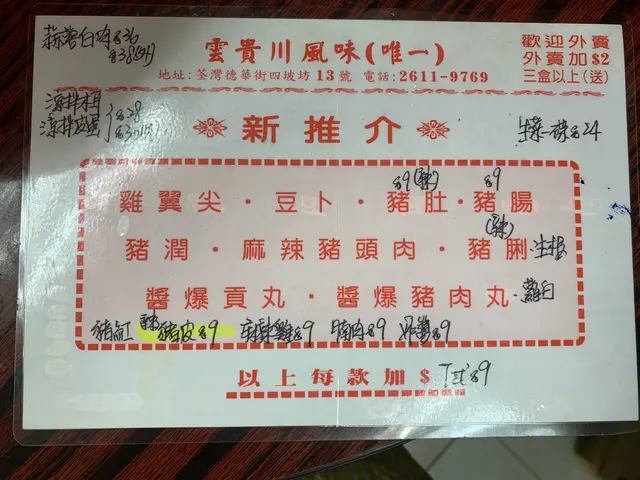 蒜蓉白肉 $36
$38
雲貴川風味(唯一)
地址:荃灣德華街四坡坊 13 號 電話:2611-9769
歡迎外賣
外賣加$2
三盒以上(送)
涼拌
涼拌皮蛋
$28
$30
新推介
生菜一碟 $24
$9 (辣) $9
雞翼尖・豆卜・豬肚・豬腸
(辣)
豬潤・麻辣豬頭肉・豬脷・生根
醬爆貢丸・醬爆豬肉丸・蘿白
豬紅 辣 豬皮 $9 麻辣雞 $9 腩肉 $9 $9
以上每款加 $ $9